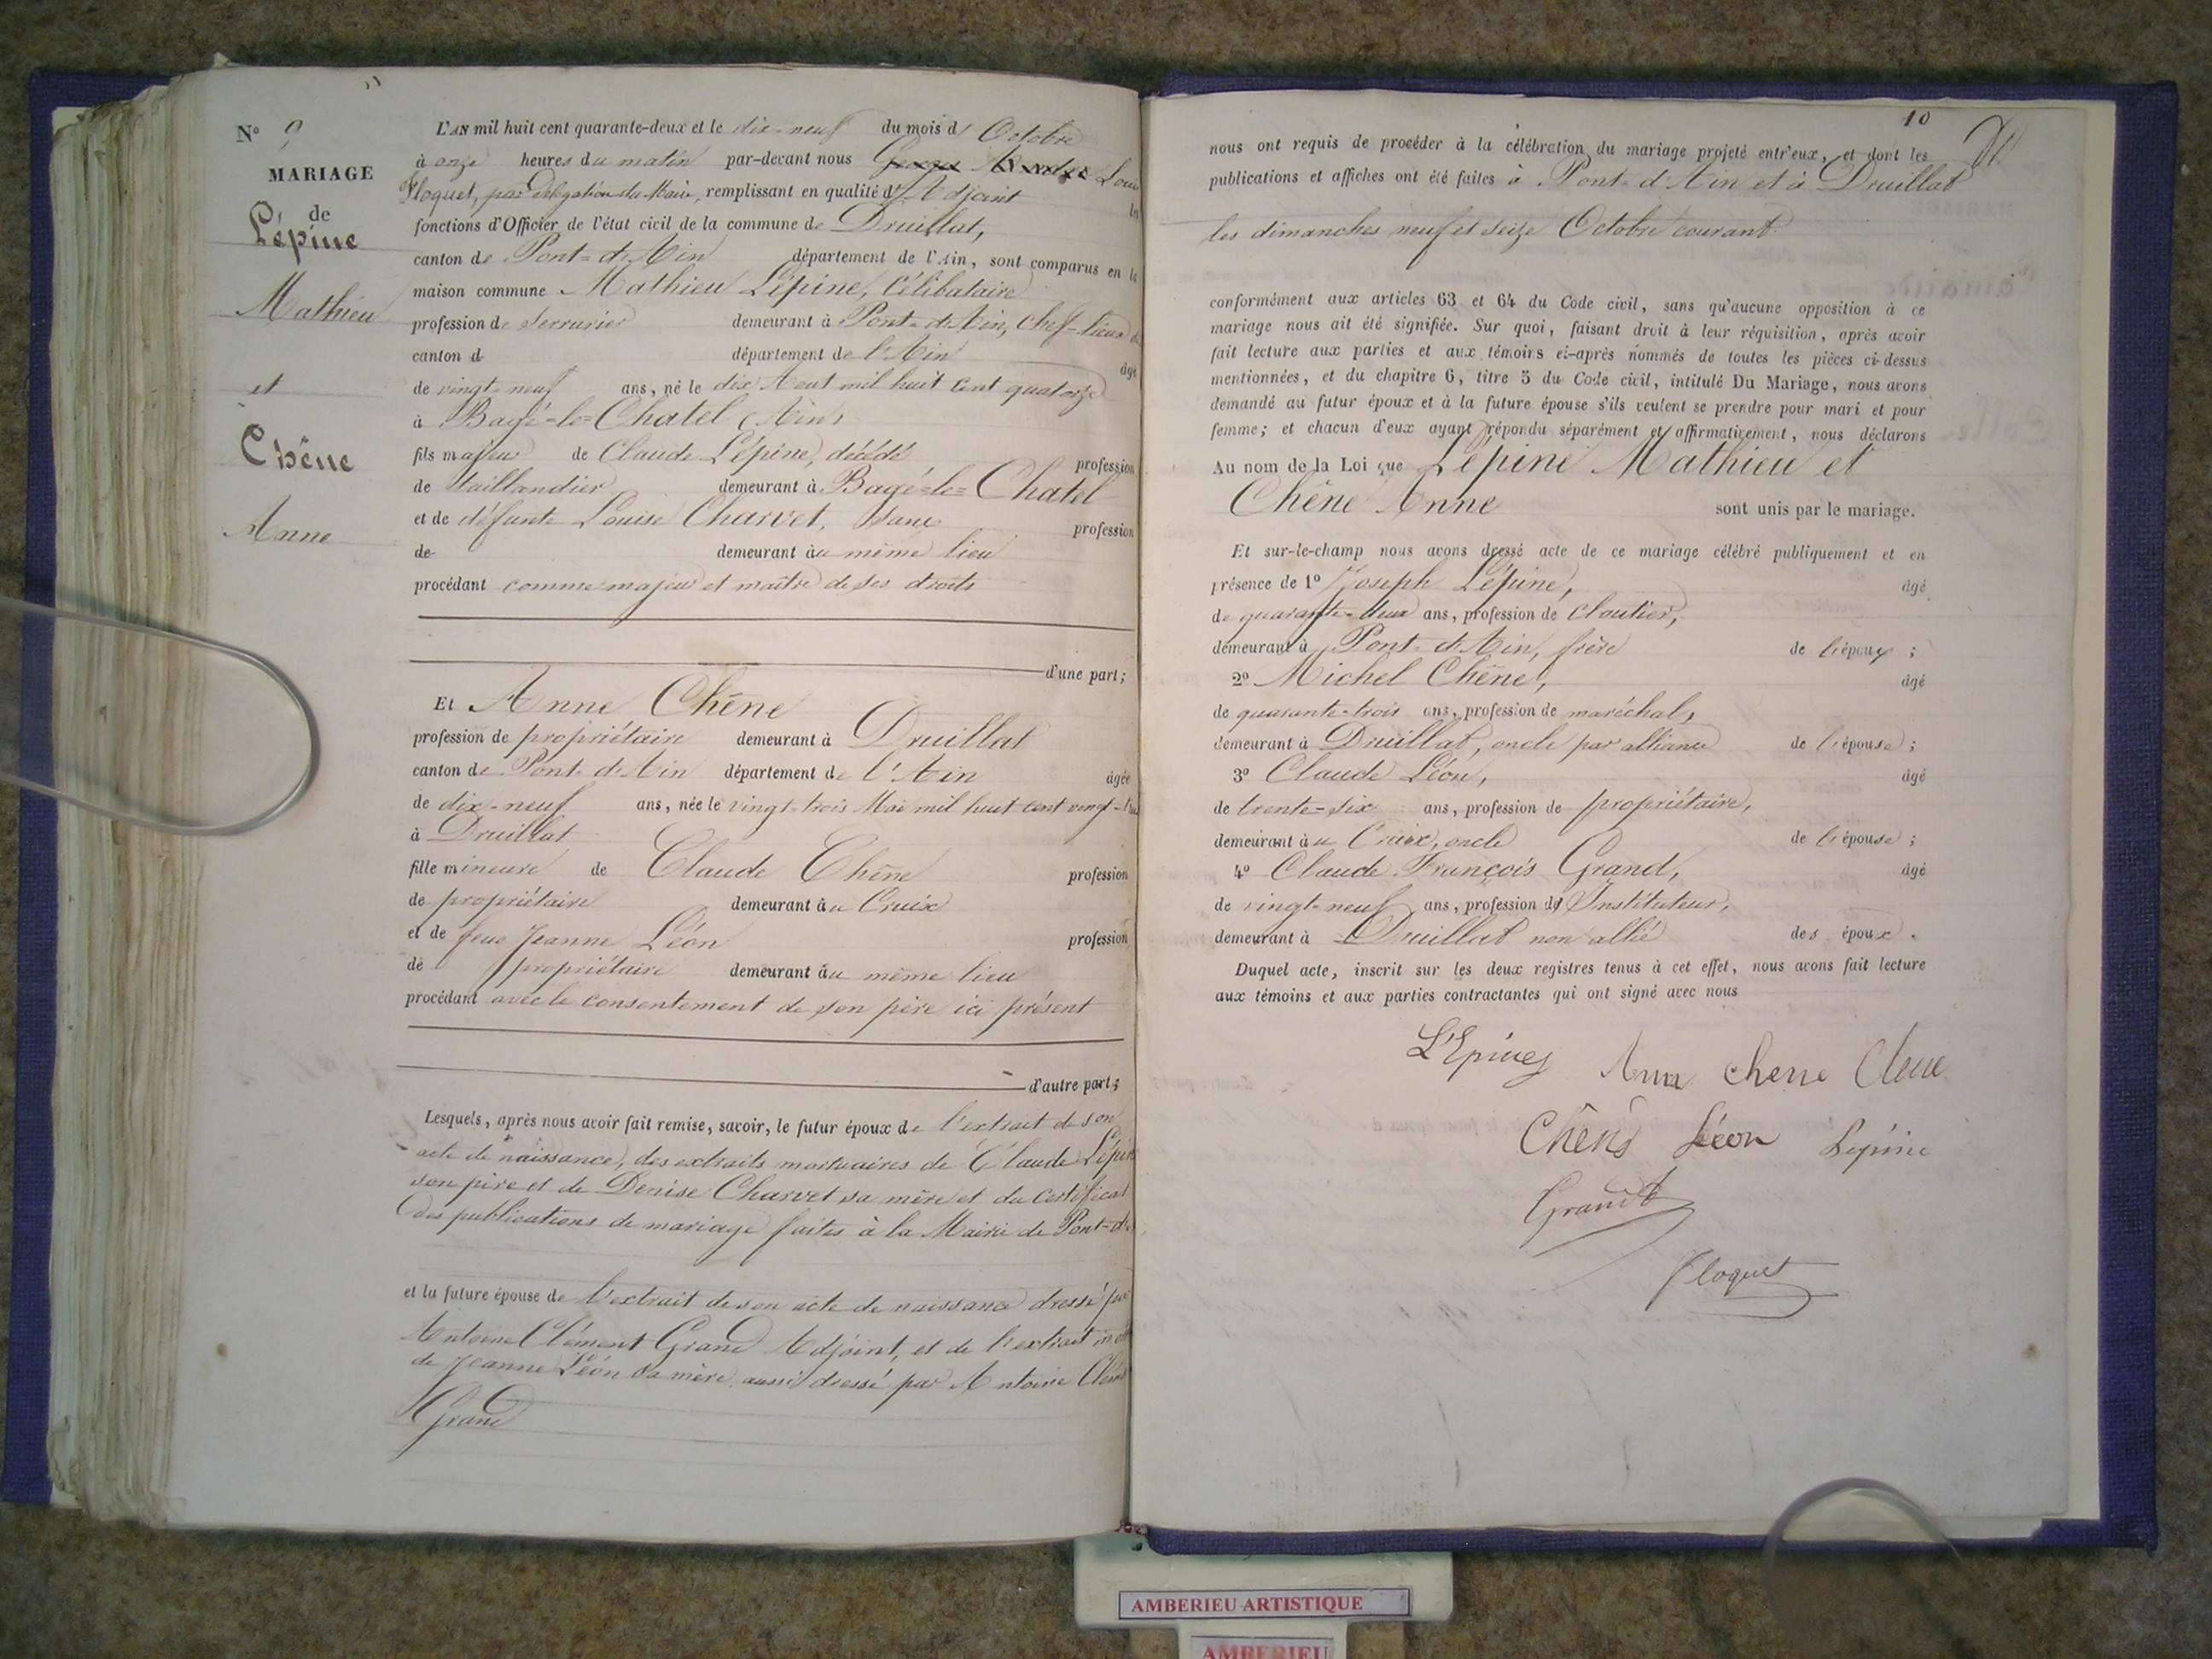 N° 9
MARIAGE
de
Lépine
Mathieu
et
Chêne
Anne
L'AN mil huit cent quarante-deux et le dix-neuf du mois d' Octobre
à onze heures du matin par-devant nous Louis
Floquet, par délégation du Maire, remplissant en qualité d'Adjoint les
fonctions d'Officier de l'état civil de la commune de Druillat,
canton de Pont-d'Ain département de l'Ain, sont comparus en la
maison commune Mathieu Lépine, Célibataire
profession de serrurier demeurant à Pont-d'Ain, Chef-lieu de
canton d département de l'Ain âgé
de vingt-neuf ans, né le dix Aout mil huit cent quatorze
à Bagé-le-Chatel (Ain)
fils majeur de Claude Lépine, décédé profession
de taillandier demeurant à Bagé-le-Chatel
et de défunte Louise Charvet, sans profession
de demeurant au même lieu
procédant comme majeur et maître de ses droits
d'une part;
Et Anne Chêne
profession de propriétaire demeurant à Druillat
canton de Pont-d'Ain département de l'Ain âgée
de dix-neuf ans, née le vingt-trois Mai mil huit cent vingt-
à Druillat
fille mineure de Claude Chêne profession
de propriétaire demeurant au Craix
et de feue Jeanne Léon profession
de propriétaire demeurant au même lieu
procédant avec le consentement de son père ici présent
d'autre part;
Lesquels, après nous avoir fait remise, savoir, le futur époux de l'extrait de son
acte de naissance, des extraits mortuaires de Claude Lépine
son père et de Denise Charvet sa mère et du certificat
des publications de mariage faites à la Mairie de Pont-d'
et la future épouse de l'extrait de son acte de naissance dressé par
Antoine Clément Grand Adjoint, et de l'extrait
de Jeanne Léon sa mère aussi dressé par Antoine Clément
Grand
10
nous ont requis de procéder à la célébration du mariage projeté entr'eux, et dont les
publications et affiches ont été faites à Pont-d'Ain et à Druillat
les dimanches neuf et seize Octobre courant
conformément aux articles 63 et 64 du Code civil, sans qu'aucune opposition à ce
mariage nous ait été signifiée. Sur quoi, faisant droit à leur réquisition, après avoir
fait lecture aux parties et aux témoins ci-après nommés de toutes les pièces ci-dessus
mentionnées, et du chapitre 6, titre 5 du Code civil, intitulé Du Mariage, nous avons
demandé au futur époux et à la future épouse s'ils veulent se prendre pour mari et pour
femme; et chacun d'eux ayant répondu séparément et affirmativement, nous déclarons
Au nom de la Loi que Lépine Mathieu et
Chêne Anne sont unis par le mariage.
Et sur-le-champ nous avons dressé acte de ce mariage célébré publiquement et en
présence de 1° Joseph Lépine, âgé
de quarante-deux ans, profession de cloutier,
demeurant à Pont-d'Ain, frère de l'époux ;
2° Michel Chêne, âgé
de quarante-trois ans, profession de maréchal,
demeurant à Druillat, oncle par alliance de l'épouse ;
3° Claude Léon, âgé
de trente-six ans, profession de propriétaire,
demeurant au Craix, oncle de l'épouse ;
4° Claude François Grand, âgé
de vingt-neuf ans, profession d'Instituteur,
demeurant à Druillat non allié des époux.
Duquel acte, inscrit sur les deux registres tenus à cet effet, nous avons fait lecture
aux témoins et aux parties contractantes qui ont signé avec nous
L'Epine Anna chene
Chêne Léon Lepine
Grand
Floquet
AMBERIEU ARTISTIQUE
AMBERIEU